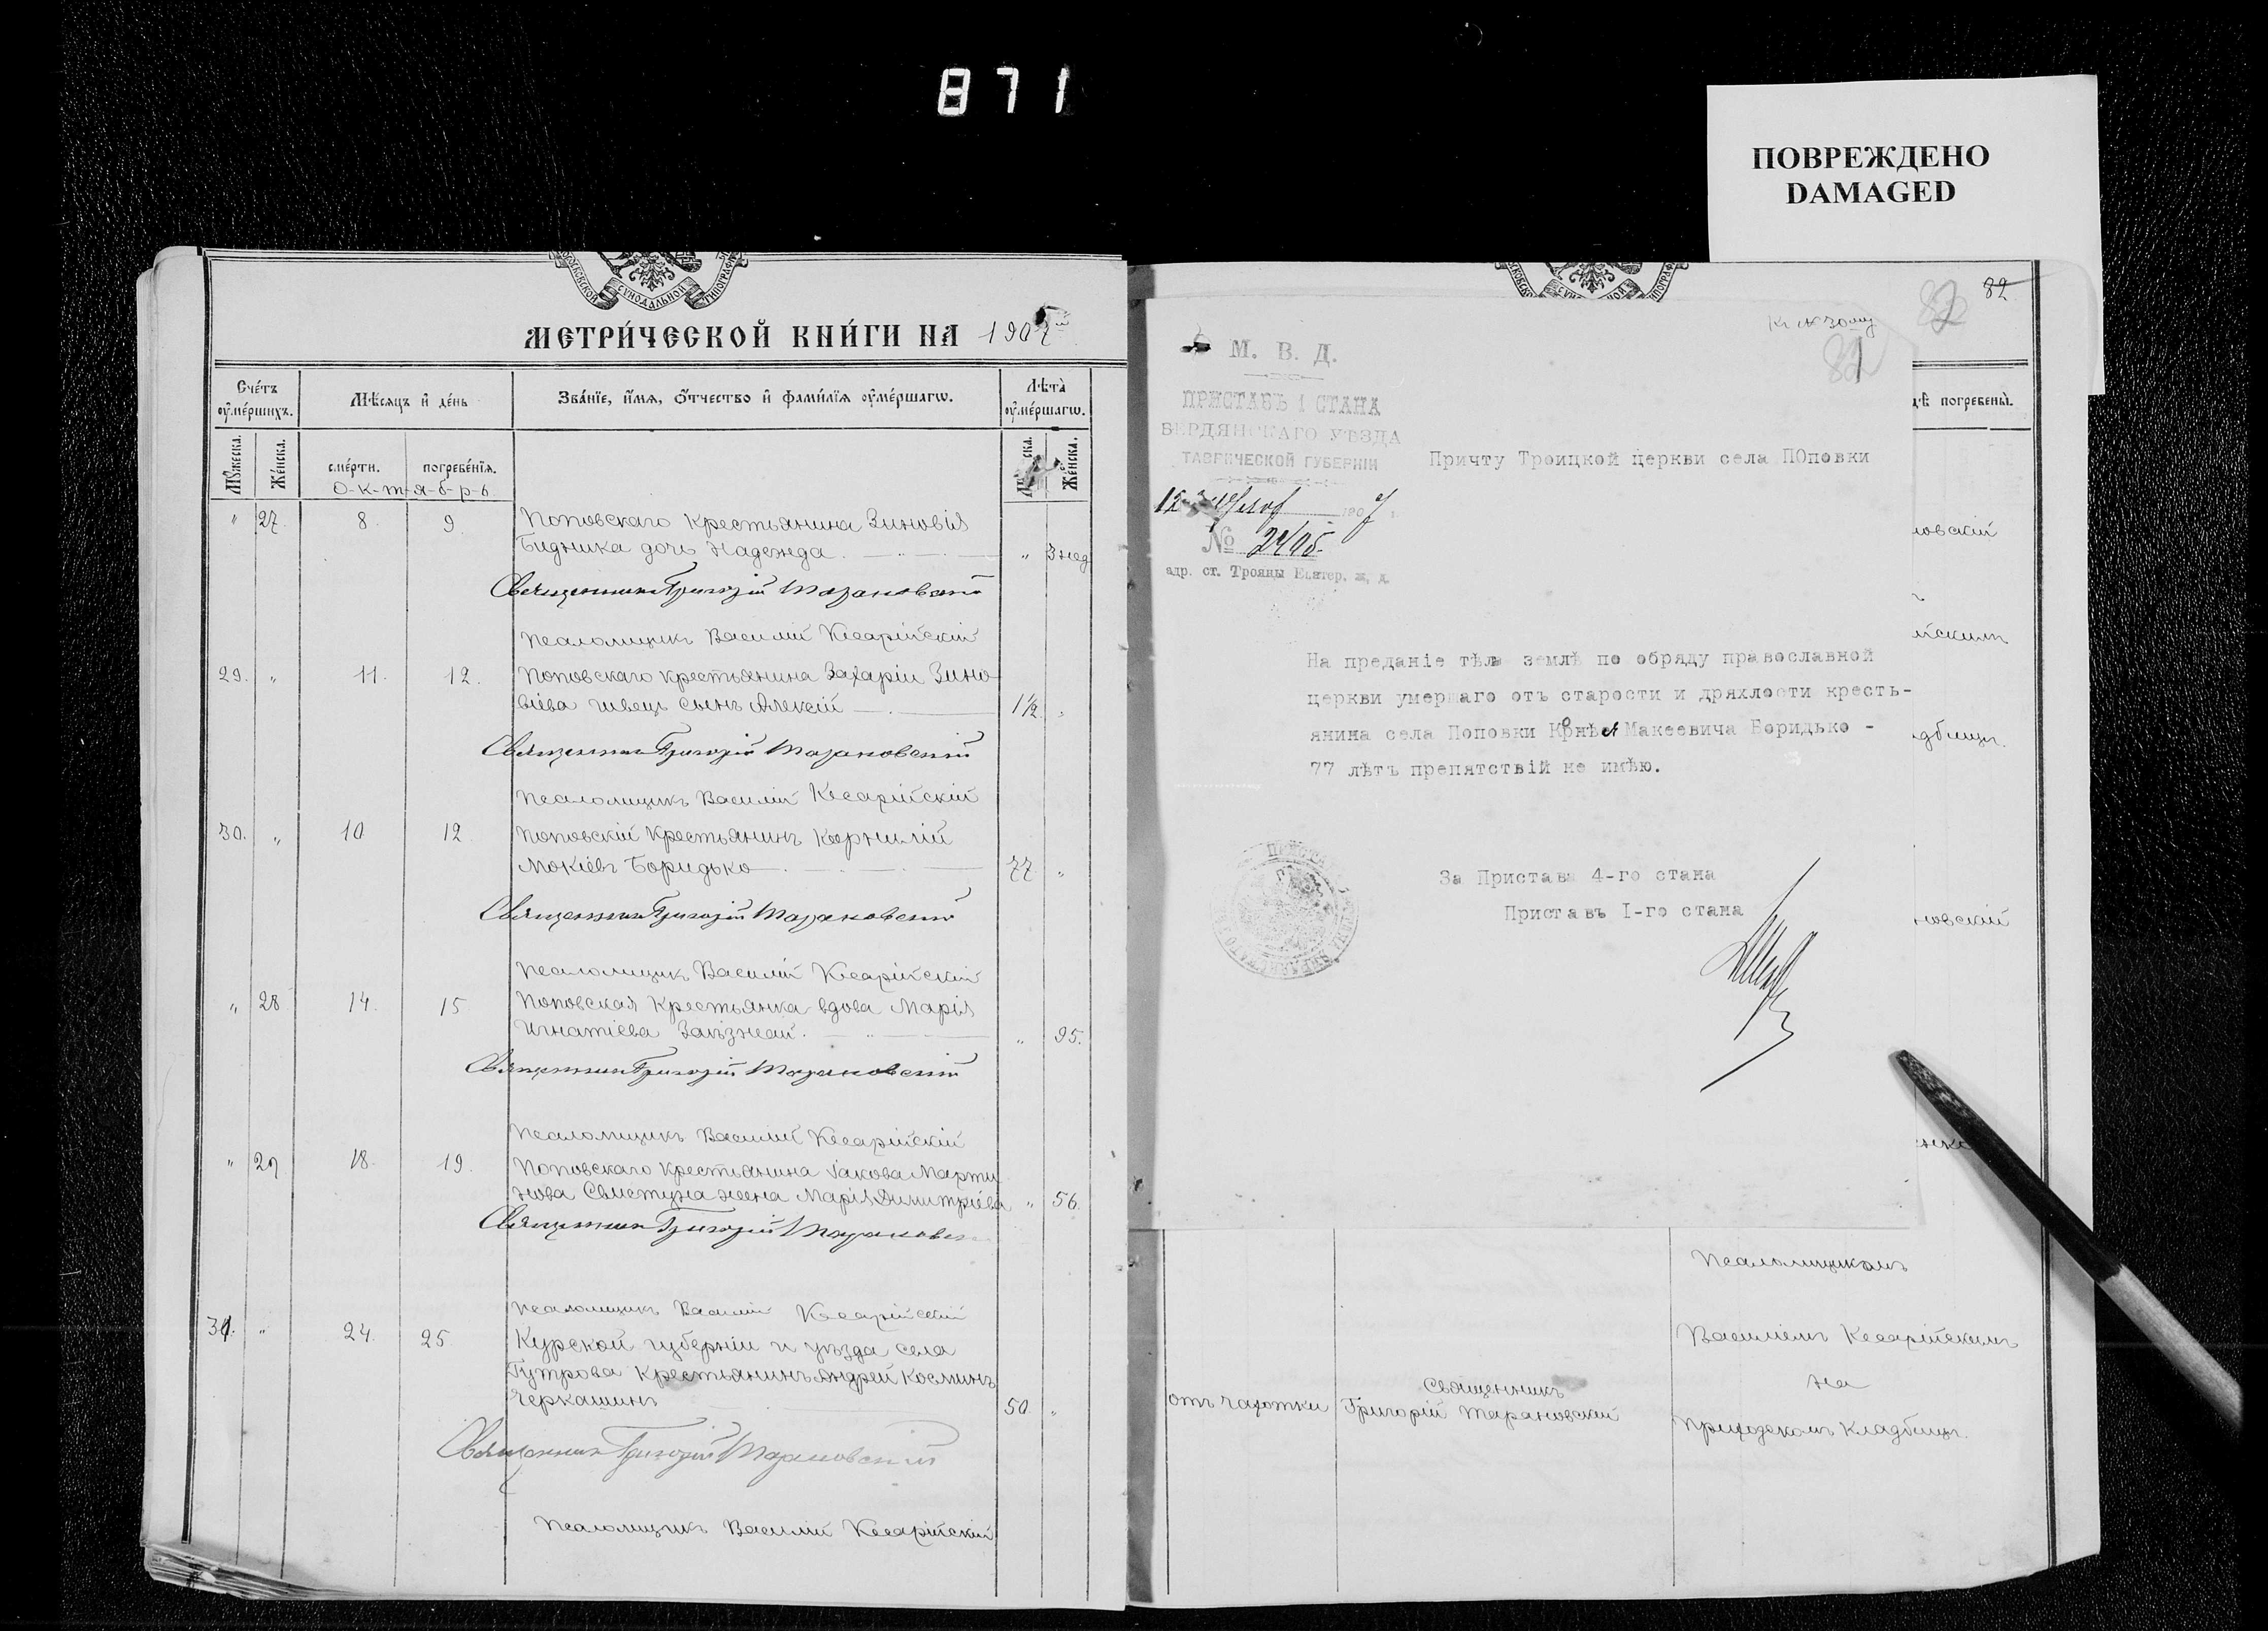 871
ПОВРЕЖДЕНО
DAMAGED
СѴНОДАЛЬНОЙ
МЕТРИ́ЧЕСКОЙ КНИ́ГИ НА 1907
Сче́тъ оуме́ршихъ.
Мѣ́сяцъ и де́нь
Зва́нїе, и́мя, о́тчество и фами́лїя оуме́ршагѡ.
Лѣта̀ оуме́ршагѡ.
Мꙋжеска.
Же́нска.
сме́рти.
погребе́нїя.
Же́нска.
О-к-т-я-б-р-ь
" 27. 8. 9. Поповскаго крестьянина Зиновія
Бидника дочь Надежда " 3 нед
Священникъ Григорій Тарановскій
Псаломщикъ Василій Кесарійскій
29. " 11. 12. Поповскаго крестьянина Захаріи Зино
віева Швецъ сынъ Алексій 1½ "
Священникъ Григорій Тарановскій
Псаломщикъ Василій Кесарійскій
30. " 10 12. Поповскій крестьянинъ Корнилій
Мокіевъ Боридько 77 "
Священникъ Григорій Тарановскій
Псаломщикъ Василій Кесарійскій
" 28 14. 15 Поповская крестьянка вдова Марія
Игнатіева " 95.
Священникъ Григорій Тарановскій
Псаломщикъ Василій Кесарійскій
" 29 18. 19. Поповскаго крестьянина Іакова Марты
нова жена Марія Димитріева " 56.
Священникъ Григорій Тарановскій
Псаломщикъ Василій Кесарійскій
31. " 24. 25. Курской губерніи и уѣзда села
Гутрова крестьянинъ Андрей Косминъ
Черкашинъ 50. "
Священникъ Григорій Тарановскій
Псаломщикъ Василій Кесарійскій
82
82
Къ № 30му
М. В. Д.
ПРИСТАВЪ 1 СТАНА
БЕРДЯНСКАГО УѢЗДА
ТАВРИЧЕСКОЙ ГУБЕРНІИ
12 1907 г.
№ 2405
адр. ст. Трояны Екатер. ж. д.
погребены̀.
Причту Троицкой церкви села ПОповки
На преданіе тѣла землѣ по обряду православной
церкви умершаго отъ старости и дряхлости кресть-
янина села Поповки Корнѣя Макеевича Боридько -
77 лѣтъ препятствій не имѣю.
За Пристава 4-го стана
Приставъ I-го стана
новскій
йскимъ
адбищѣ.
новскій
Псаломщикомъ
Василіемъ Кесарійскимъ
на
Приходскомъ кладбищѣ.
отъ чахотки
Священникъ
Григорій Тарановскій